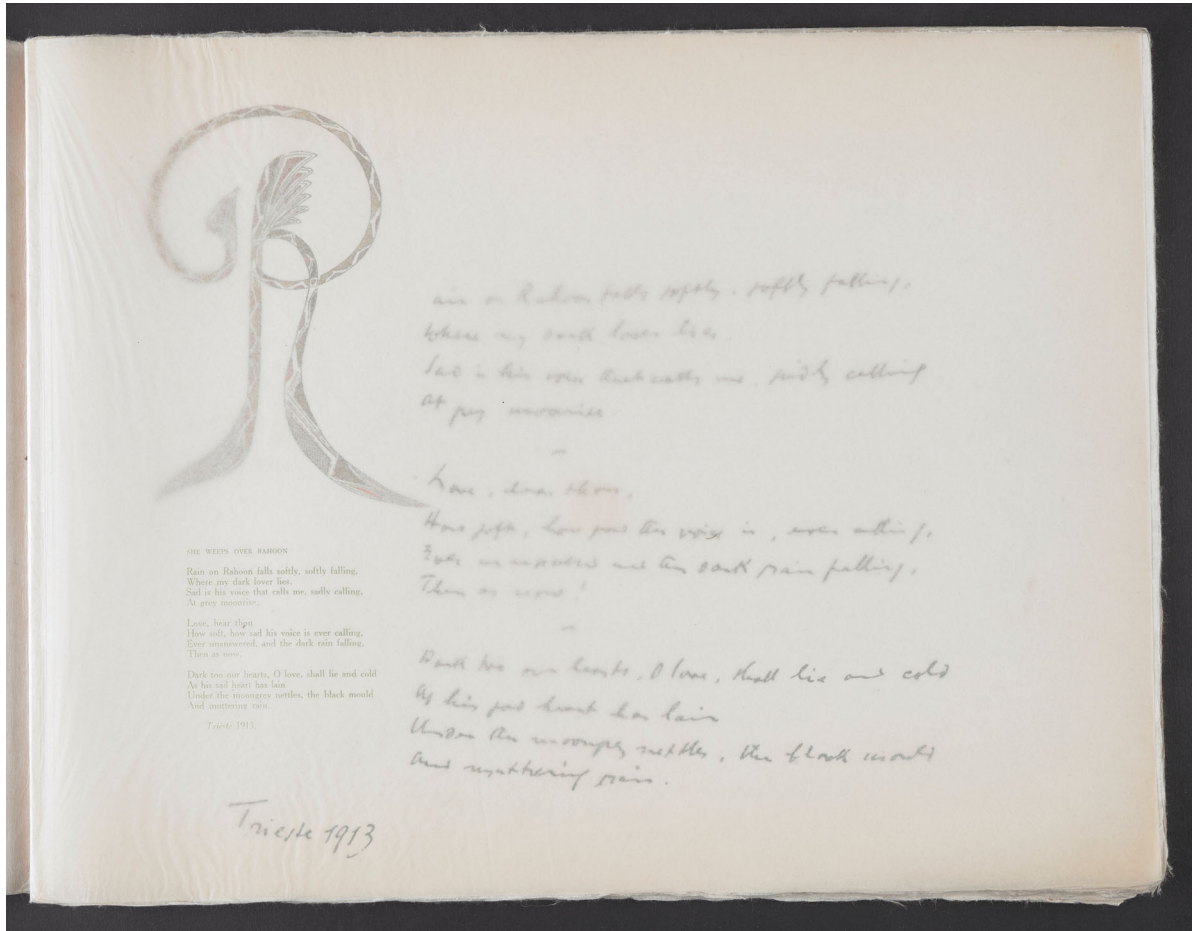 R
ain on Rahoon falls softly, softly falling,
Where my dark lover lies.
Sad is his voice that calls me, sadly calling
At grey moonrise
Love, hear thou,
How soft, how sad his voice is, ever calling,
Ever unanswered and the dark rain falling,
Then as now!
Dark too our hearts, O love, shall lie and cold
As his sad heart has lain
Under the moongrey nettles, the black mould
And muttering rain.
Trieste 1913
SHE WEEPS OVER RAHOON
Rain on Rahoon falls softly, softly falling,
Where my dark lover lies.
Sad is his voice that calls me, sadly calling,
At grey moonrise.
Love, hear thou
How soft, how sad his voice is ever calling,
Ever unanswered, and the dark rain falling,
Then as now.
Dark too our hearts, O love, shall lie and cold
As his sad heart has lain
Under the moongrey nettles, the black mould
And muttering rain.
Trieste 1913.